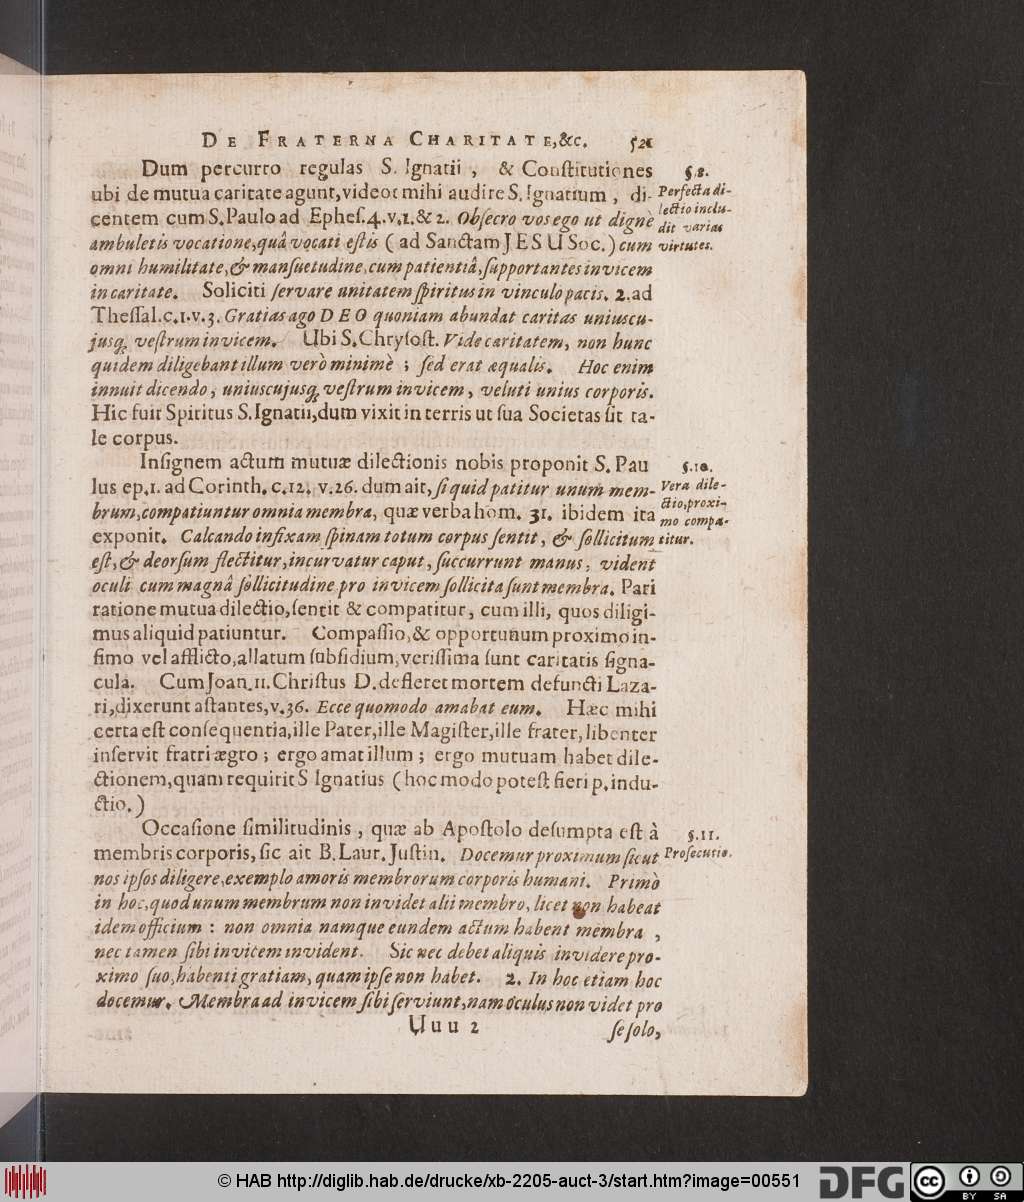 DE FRATERNA CHARITATE,&c. 521
Dum percurro regulas S. Ignatii , & Conſtitutiones
ubi de mutua caritate agunt, videor mihi audire S. Ignatium , di-
centem cum S. Paulo ad Epheſ. 4. v. 1. & 2. Obſecro vos ego ut dignè
ambuletis vocatione, quâ vocati eſtis ( ad Sanctam JESU Soc. ) cum
omni humilitate, & manſuetudine, cum patientiâ, ſupportantes invicem
in caritate. Soliciti ſervare unitatem ſpiritus in vinculo pacis. 2. ad
Theſſal. c. 1. v. 3. Gratias ago DEO quoniam abundat caritas uniuscu-
jusq́; veſtrum invicem. Ubi S. Chryſoſt. Vide caritatem, non hunc
quidem diligebant illum verò minimè ; ſed erat æqualis. Hoc enim
innuit dicendo, uniuscujusq́; veſtrum invicem, veluti unius corporis.
Hic fuit Spiritus S. Ignatii, dum vixit in terris ut ſua Societas ſit ta-
le corpus.
§. 8.
Perfecta di-
lectio inclu-
dit varias
virtutes.
Inſignem actum mutuæ dilectionis nobis proponit S. Pau
lus ep. 1. ad Corinth. c. 12. v. 26. dum ait, ſi quid patitur unum mem-
brum, compatiuntur omnia membra, quæ verba hom. 31. ibidem ita
exponit. Calcando infixam ſpinam totum corpus ſentit, & ſollicitum
eſt, & deorſum flectitur, incurvatur caput, ſuccurrunt manus, vident
oculi cum magnâ ſollicitudine pro invicem ſollicita ſunt membra. Pari
ratione mutua dilectio, ſentit & compatitur, cum illi, quos diligi-
mus aliquid patiuntur. Compaſſio, & opportunum proximo in-
fimo vel afflicto, allatum ſubſidium, veriſſima ſunt caritatis ſigna-
cula. Cum Joan. 11. Chriſtus D. defleret mortem defuncti Laza-
ri, dixerunt aſtantes, v. 36. Ecce quomodo amabat eum. Hæc mihi
certa eſt conſequentia, ille Pater, ille Magiſter, ille frater, libenter
inſervit fratri ægro ; ergo amat illum ; ergo mutuam habet dile-
ctionem, quam requirit S Ignatius ( hoc modo poteſt fieri p. indu-
ctio. )
§. 10.
Vera dile-
ctio, proxi-
mo compa-
titur.
Occaſione ſimilitudinis , quæ ab Apoſtolo deſumpta eſt à
membris corporis, ſic ait B. Laur. Juſtin. Docemur proximum ſicut
nos ipſos diligere, exemplo amoris membrorum corporis humani. Primò
in hoc, quod unum membrum non invidet alii membro, licet non habeat
idem officium : non omnia namque eundem actum habent membra ,
nec tamen ſibi invicem invident. Sic nec debet aliquis invidere pro-
ximo ſuo, habenti gratiam, quam ipſe non habet. 2. In hoc etiam hoc
docemur. Membra ad invicem ſibi ſerviunt, nam oculus non videt pro
§. 11.
Proſecutio.
Uuu 2 ſe ſolo,
© HAB http://diglib.hab.de/drucke/xb-2205-auct-3/start.htm?image=00551
DFG
cc BY SA